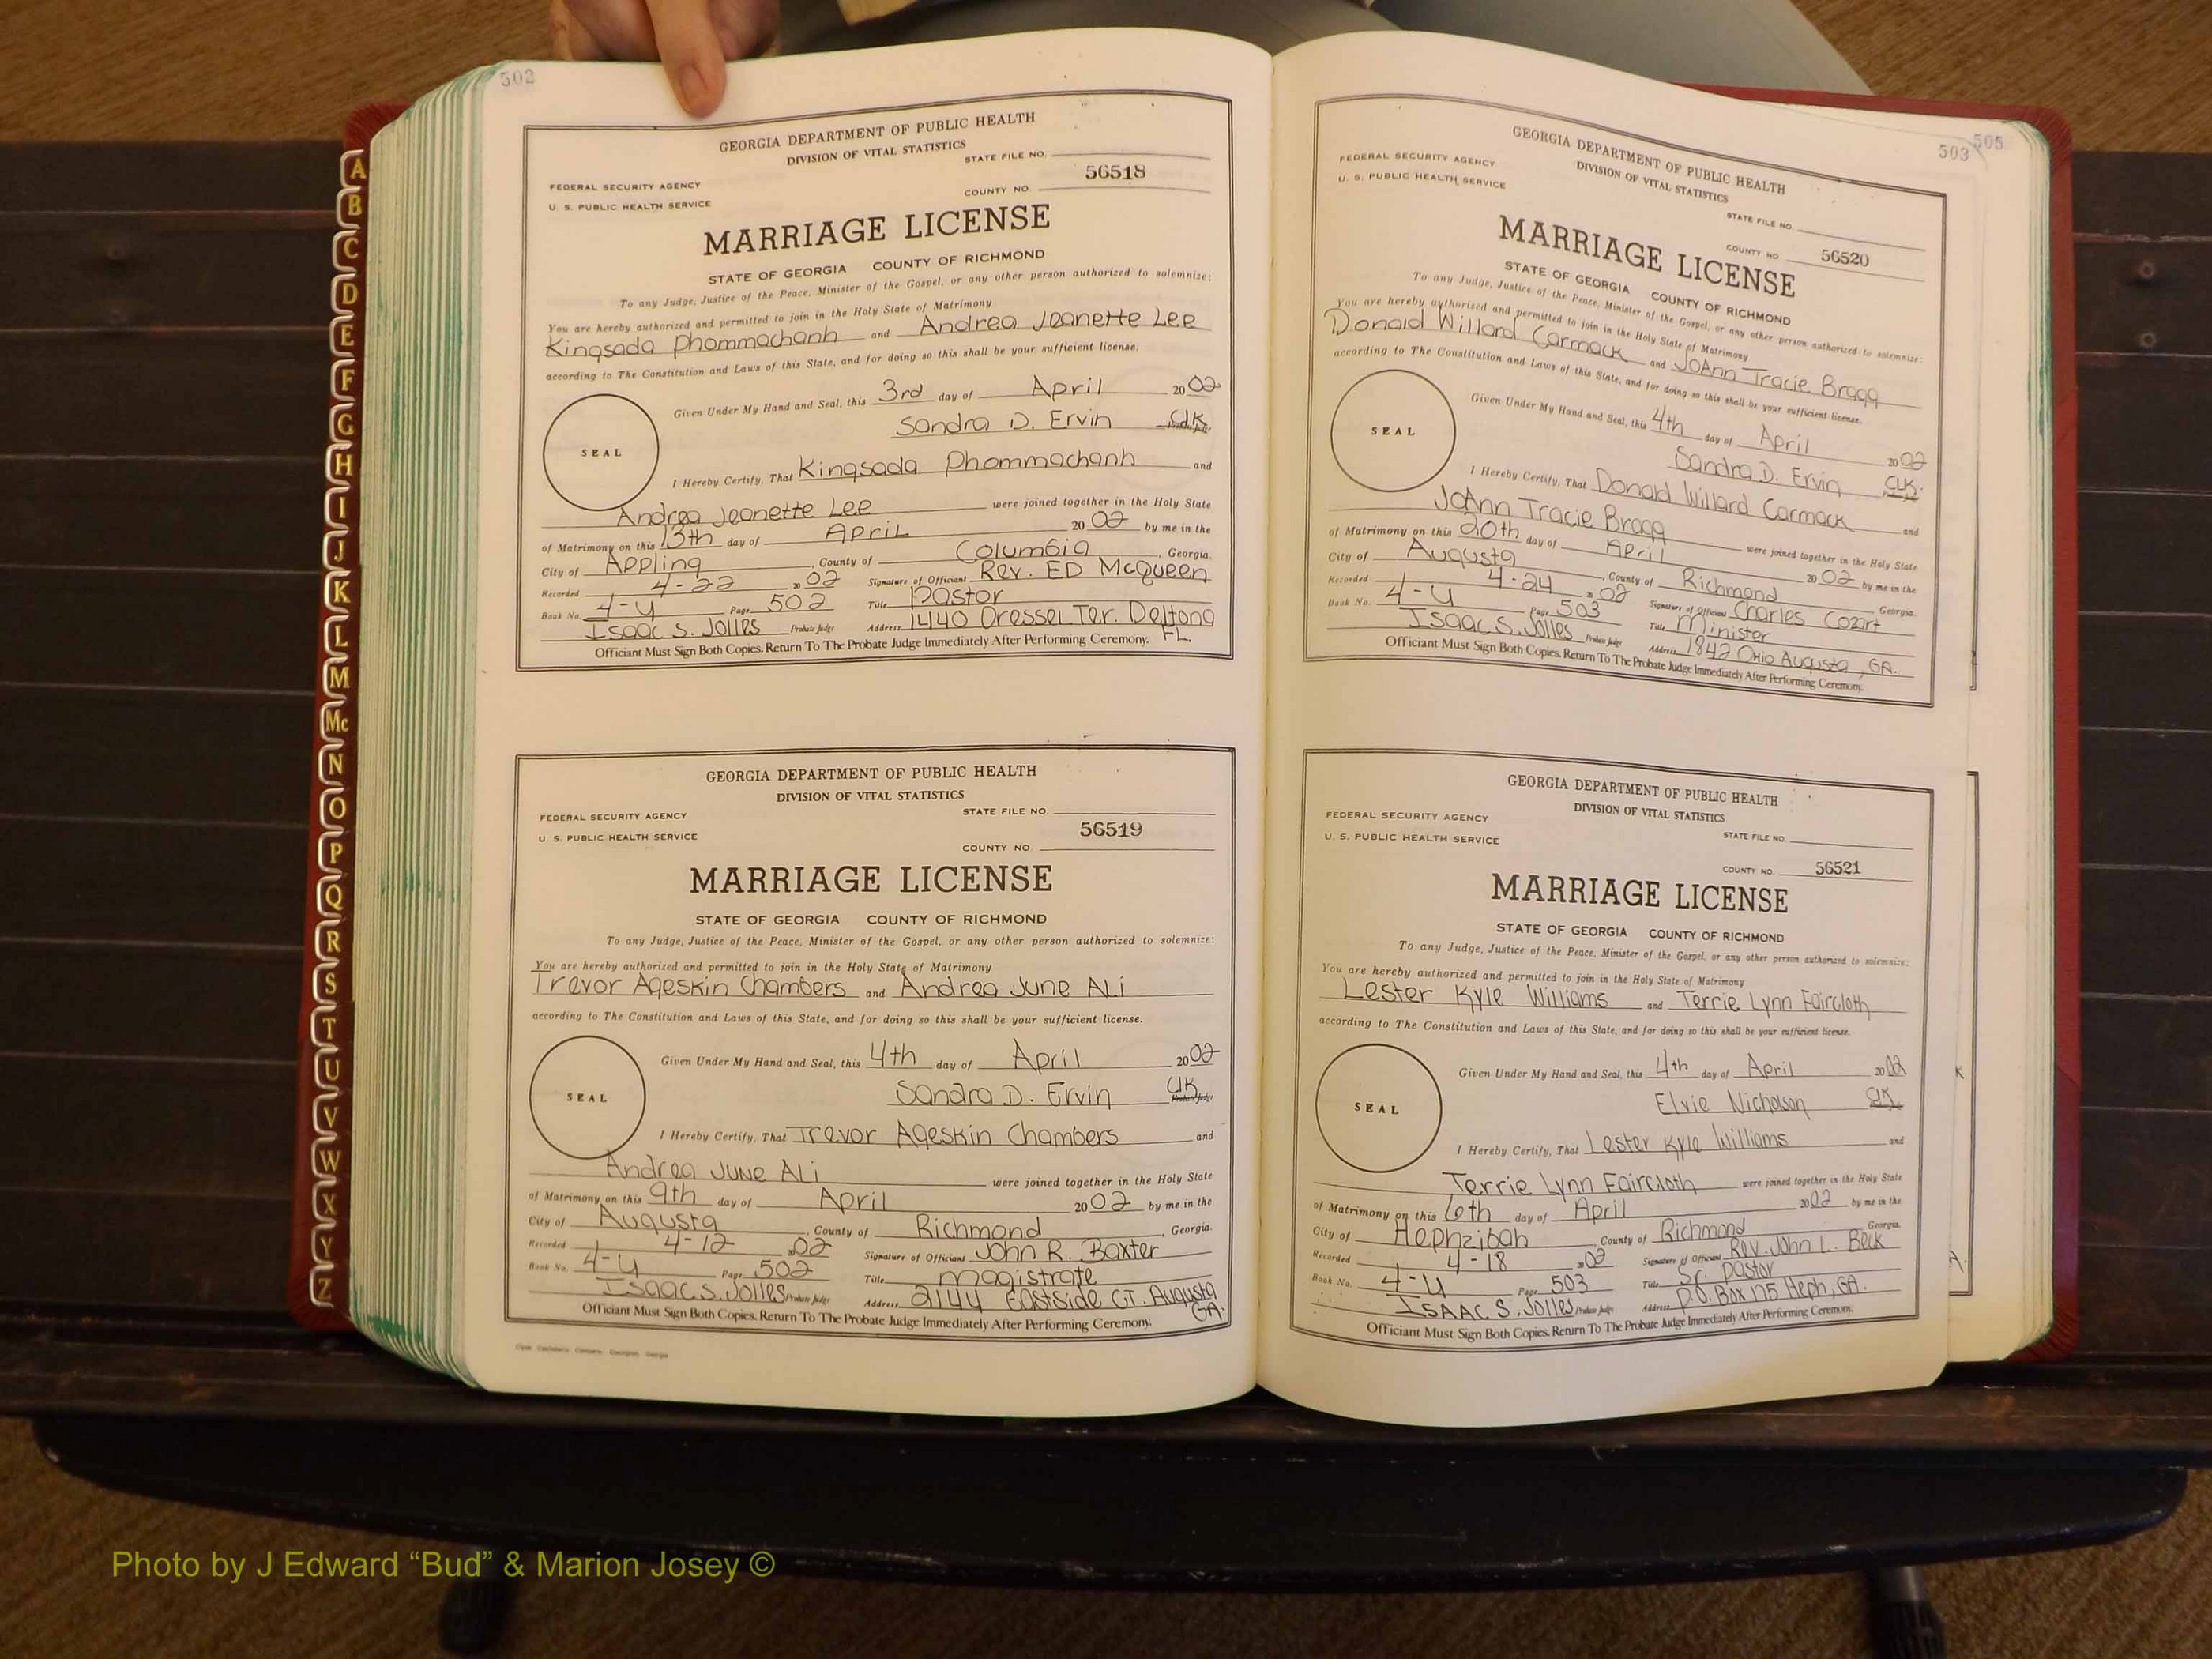 502
GEORGIA DEPARTMENT OF PUBLIC HEALTH
DIVISION OF VITAL STATISTICS
STATE FILE NO.
FEDERAL SECURITY AGENCY
U. S. PUBLIC HEALTH SERVICE
COUNTY NO. 56518
MARRIAGE LICENSE
STATE OF GEORGIA COUNTY OF RICHMOND
To any Judge, Justice of the Peace, Minister of the Gospel, or any other person authorized to solemnize:
You are hereby authorized and permitted to join in the Holy State of Matrimony
Kingsada Phommachanh and Andrea Jeanette Lee
according to The Constitution and Laws of this State, and for doing so this shall be your sufficient license.
Given Under My Hand and Seal, this 3rd day of April 2002
Sandra D. Ervin Clk.
SEAL
I Hereby Certify, That Kingsada Phommachanh and
Andrea Jeanette Lee were joined together in the Holy State
of Matrimony on this 13th day of April 2002 by me in the
City of Appling, County of Columbia, Georgia.
Recorded 4-22 02 Signature of Official Rev. ED McQueen
Book No. 4-U Page 502 Title Pastor
Isaac S. Jolles Probate Judge Address 1440 Dressel Ter. Deltona FL.
Officiant Must Sign Both Copies. Return To The Probate Judge Immediately After Performing Ceremony.
GEORGIA DEPARTMENT OF PUBLIC HEALTH
DIVISION OF VITAL STATISTICS
STATE FILE NO.
FEDERAL SECURITY AGENCY
U. S. PUBLIC HEALTH SERVICE
56519
COUNTY NO.
MARRIAGE LICENSE
STATE OF GEORGIA COUNTY OF RICHMOND
To any Judge, Justice of the Peace, Minister of the Gospel, or any other person authorized to solemnize:
You are hereby authorized and permitted to join in the Holy State of Matrimony
Trevor Ageskin Chambers and Andrea June ALi
according to The Constitution and Laws of this State, and for doing so this shall be your sufficient license.
Given Under My Hand and Seal, this 4th day of April 2002
Sandra D. Ervin Clk. Probate Judge
SEAL
I Hereby Certify, That Trevor Ageskin Chambers and
Andrea JUNE ALi were joined together in the Holy State
of Matrimony on this 9th day of April 2002 by me in the
City of Augusta, County of Richmond, Georgia.
Recorded 4-12 02 Signature of Official John R. Baxter
Book No. 4-U Page 502 Title magistrate
Isaac S. Jolles Probate Judge Address 2144 Eastside CT. Augusta GA.
Officiant Must Sign Both Copies. Return To The Probate Judge Immediately After Performing Ceremony.
503
505
GEORGIA DEPARTMENT OF PUBLIC HEALTH
DIVISION OF VITAL STATISTICS
FEDERAL SECURITY AGENCY
U. S. PUBLIC HEALTH SERVICE
STATE FILE NO.
COUNTY NO 56520
MARRIAGE LICENSE
STATE OF GEORGIA COUNTY OF RICHMOND
To any Judge, Justice of the Peace, Minister of the Gospel, or any other person authorized to solemnize:
You are hereby authorized and permitted to join in the Holy State of Matrimony
Donald Willard Carmack and JOAnn Tracie Bragg
according to The Constitution and Laws of this State, and for doing so this shall be your sufficient license.
Given Under My Hand and Seal, this 4th day of April 2002
Sandra D. Ervin Clk.
SEAL
I Hereby Certify, That Donald Willard Carmack and
JoAnn Tracie Bragg were joined together in the Holy State
of Matrimony on this 20th day of April 2002 by me in the
City of Augusta, County of Richmond Georgia.
Recorded 4-24 02 Signature of Official Charles Cozart
Book No. 4-U Page 503 Title Minister
Isaac S. Jolles Probate Judge Address 1842 Ohio Augusta, GA.
Officiant Must Sign Both Copies. Return To The Probate Judge Immediately After Performing Ceremony.
GEORGIA DEPARTMENT OF PUBLIC HEALTH
DIVISION OF VITAL STATISTICS
FEDERAL SECURITY AGENCY
U. S. PUBLIC HEALTH SERVICE
STATE FILE NO.
COUNTY NO. 56521
MARRIAGE LICENSE
STATE OF GEORGIA COUNTY OF RICHMOND
To any Judge, Justice of the Peace, Minister of the Gospel, or any other person authorized to solemnize:
You are hereby authorized and permitted to join in the Holy State of Matrimony
Lester Kyle Williams and Terrie Lynn Faircloth
according to The Constitution and Laws of this State, and for doing so this shall be your sufficient license.
Given Under My Hand and Seal, this 4th day of April 2002
Elvie Nicholson Clk
SEAL
I Hereby Certify, That Lester Kyle Williams and
Terrie Lynn Faircloth were joined together in the Holy State
of Matrimony on this 6th day of April 2002 by me in the
City of Hephzibah County of Richmond Georgia.
Recorded 4-18 02 Signature of Official Rev. John L. Beck
Book No. 4-U Page 503 Title Sr. pastor
ISAAC S. Jolles Probate Judge Address P.O. Box 175 Heph, GA.
Officiant Must Sign Both Copies. Return To The Probate Judge Immediately After Performing Ceremony.
A
B
C
D
E
F
G
H
I
J
K
L
M
Mc
N
O
P
Q
R
S
T
U
V
W
X
Y
Z
Photo by J Edward “Bud” & Marion Josey ©